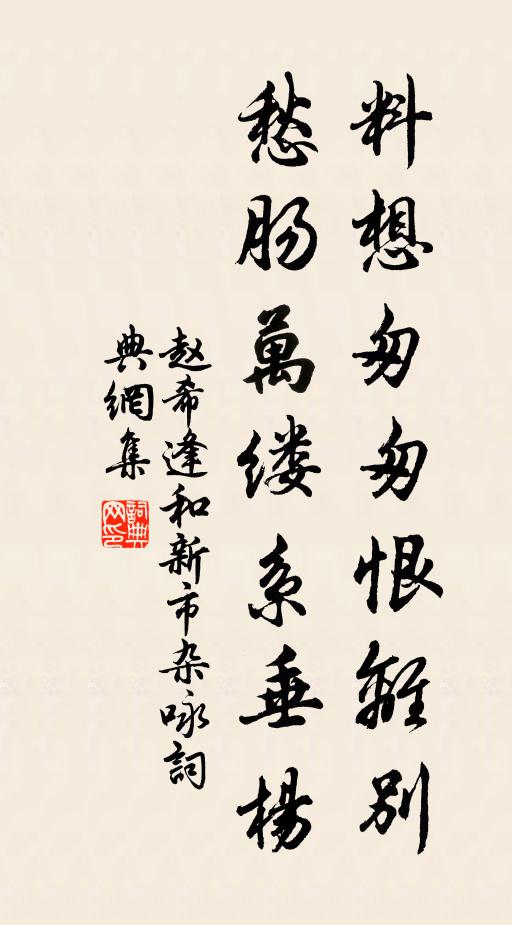 料想匆匆恨離别
愁肠萬缕系垂楊
赵希逢和新市杂咏詞
典網集
詞典网印